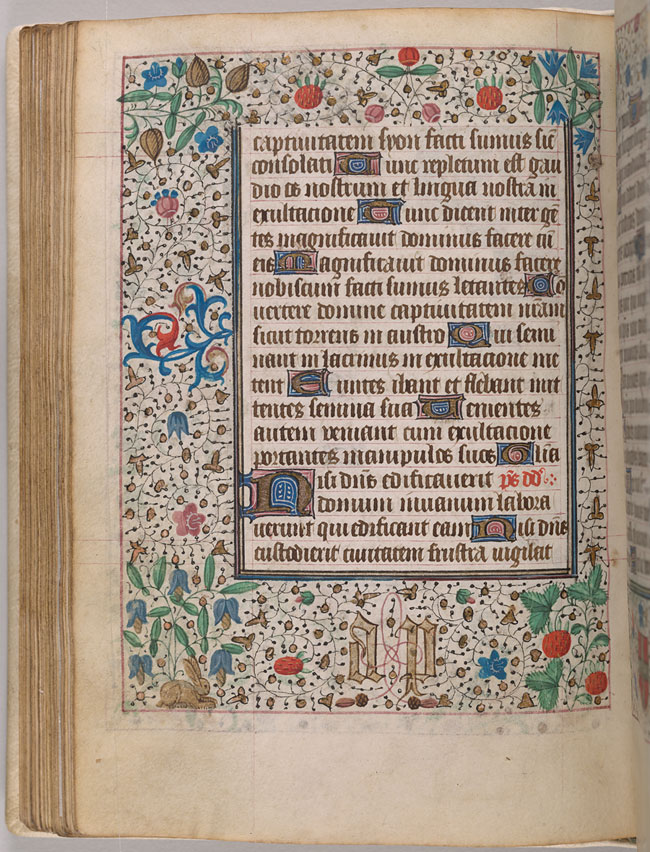 captivitatem syon facti sumus sic̄
consolati Tunc repletum est gau
dio os nostrum et lingua nostra in
exultacione Tunc dicent inter gē
tes magnificavit dominus facere cū
eis Magnificavit dominus facere
nobiscum facti sumus letantes Co
vertere domine captivitatem nr̄am
sicut torrens in austro Qui semi
nant in lacrimis in exultacione me
tent Euntes ibant et flebant mit
tentes semina sua Venientes
autem venient cum exultacione
portantes manipulos suos Gl̄ia
Nisi dn̄s edificaverit ps̄ dd̄
domum in vanum labora
verunt qui edificant eam Nisi dn̄s
custodierit civitatem frustra vigilat
a p